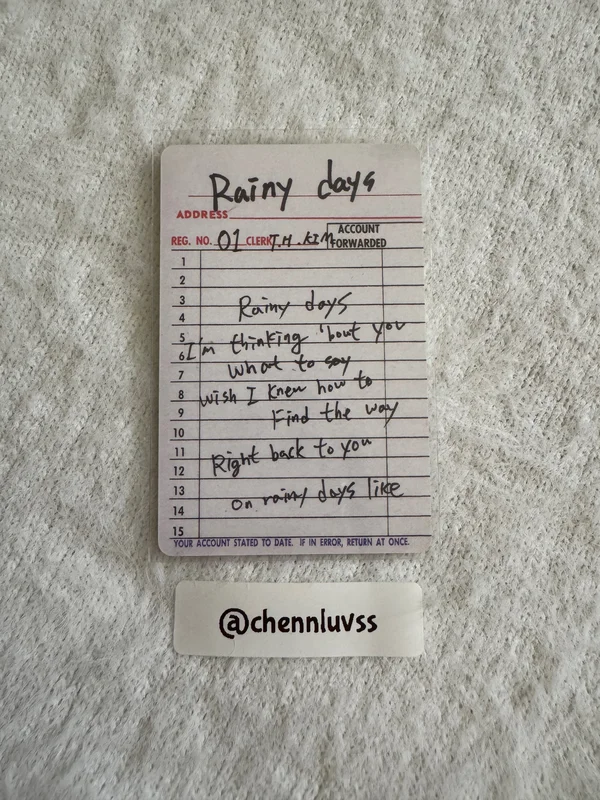 Rainy days
ADDRESS
REG. NO. 01 CLERK T.H.KIM ACCOUNT FORWARDED
1
2
3 Rainy days
4
5 I'm thinking 'bout you
6
7 what to say
8 wish I knew how to
9 Find the way
10
11 Right back to you
12
13 on rainy days like
14
15
YOUR ACCOUNT STATED TO DATE. IF IN ERROR, RETURN AT ONCE.
@chennluvss